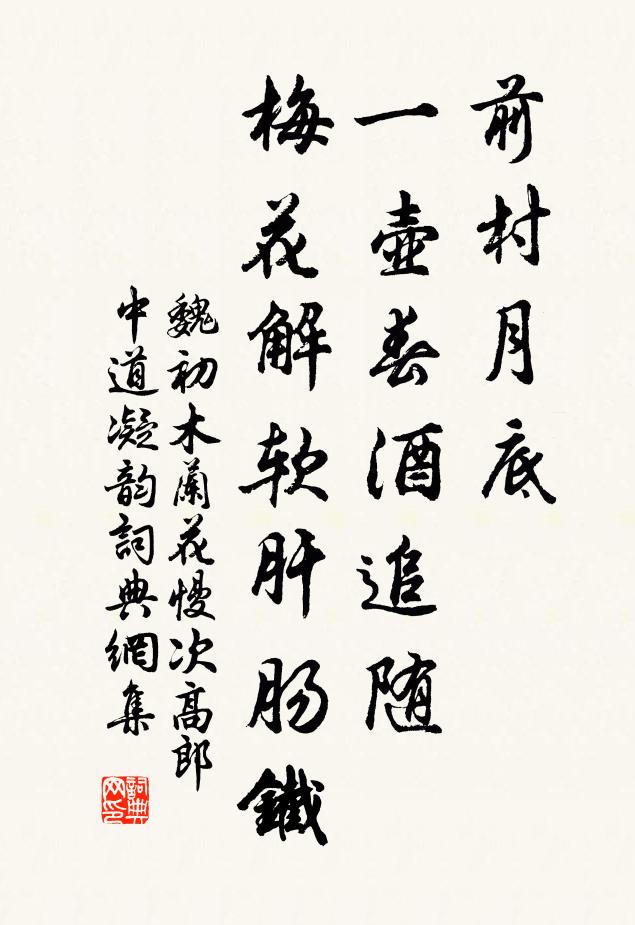 前村月底
一壺春酒追随
梅花解软肝肠鐵
魏初木蘭花慢次高郎
中道凝韵詞典網集
詞典网印